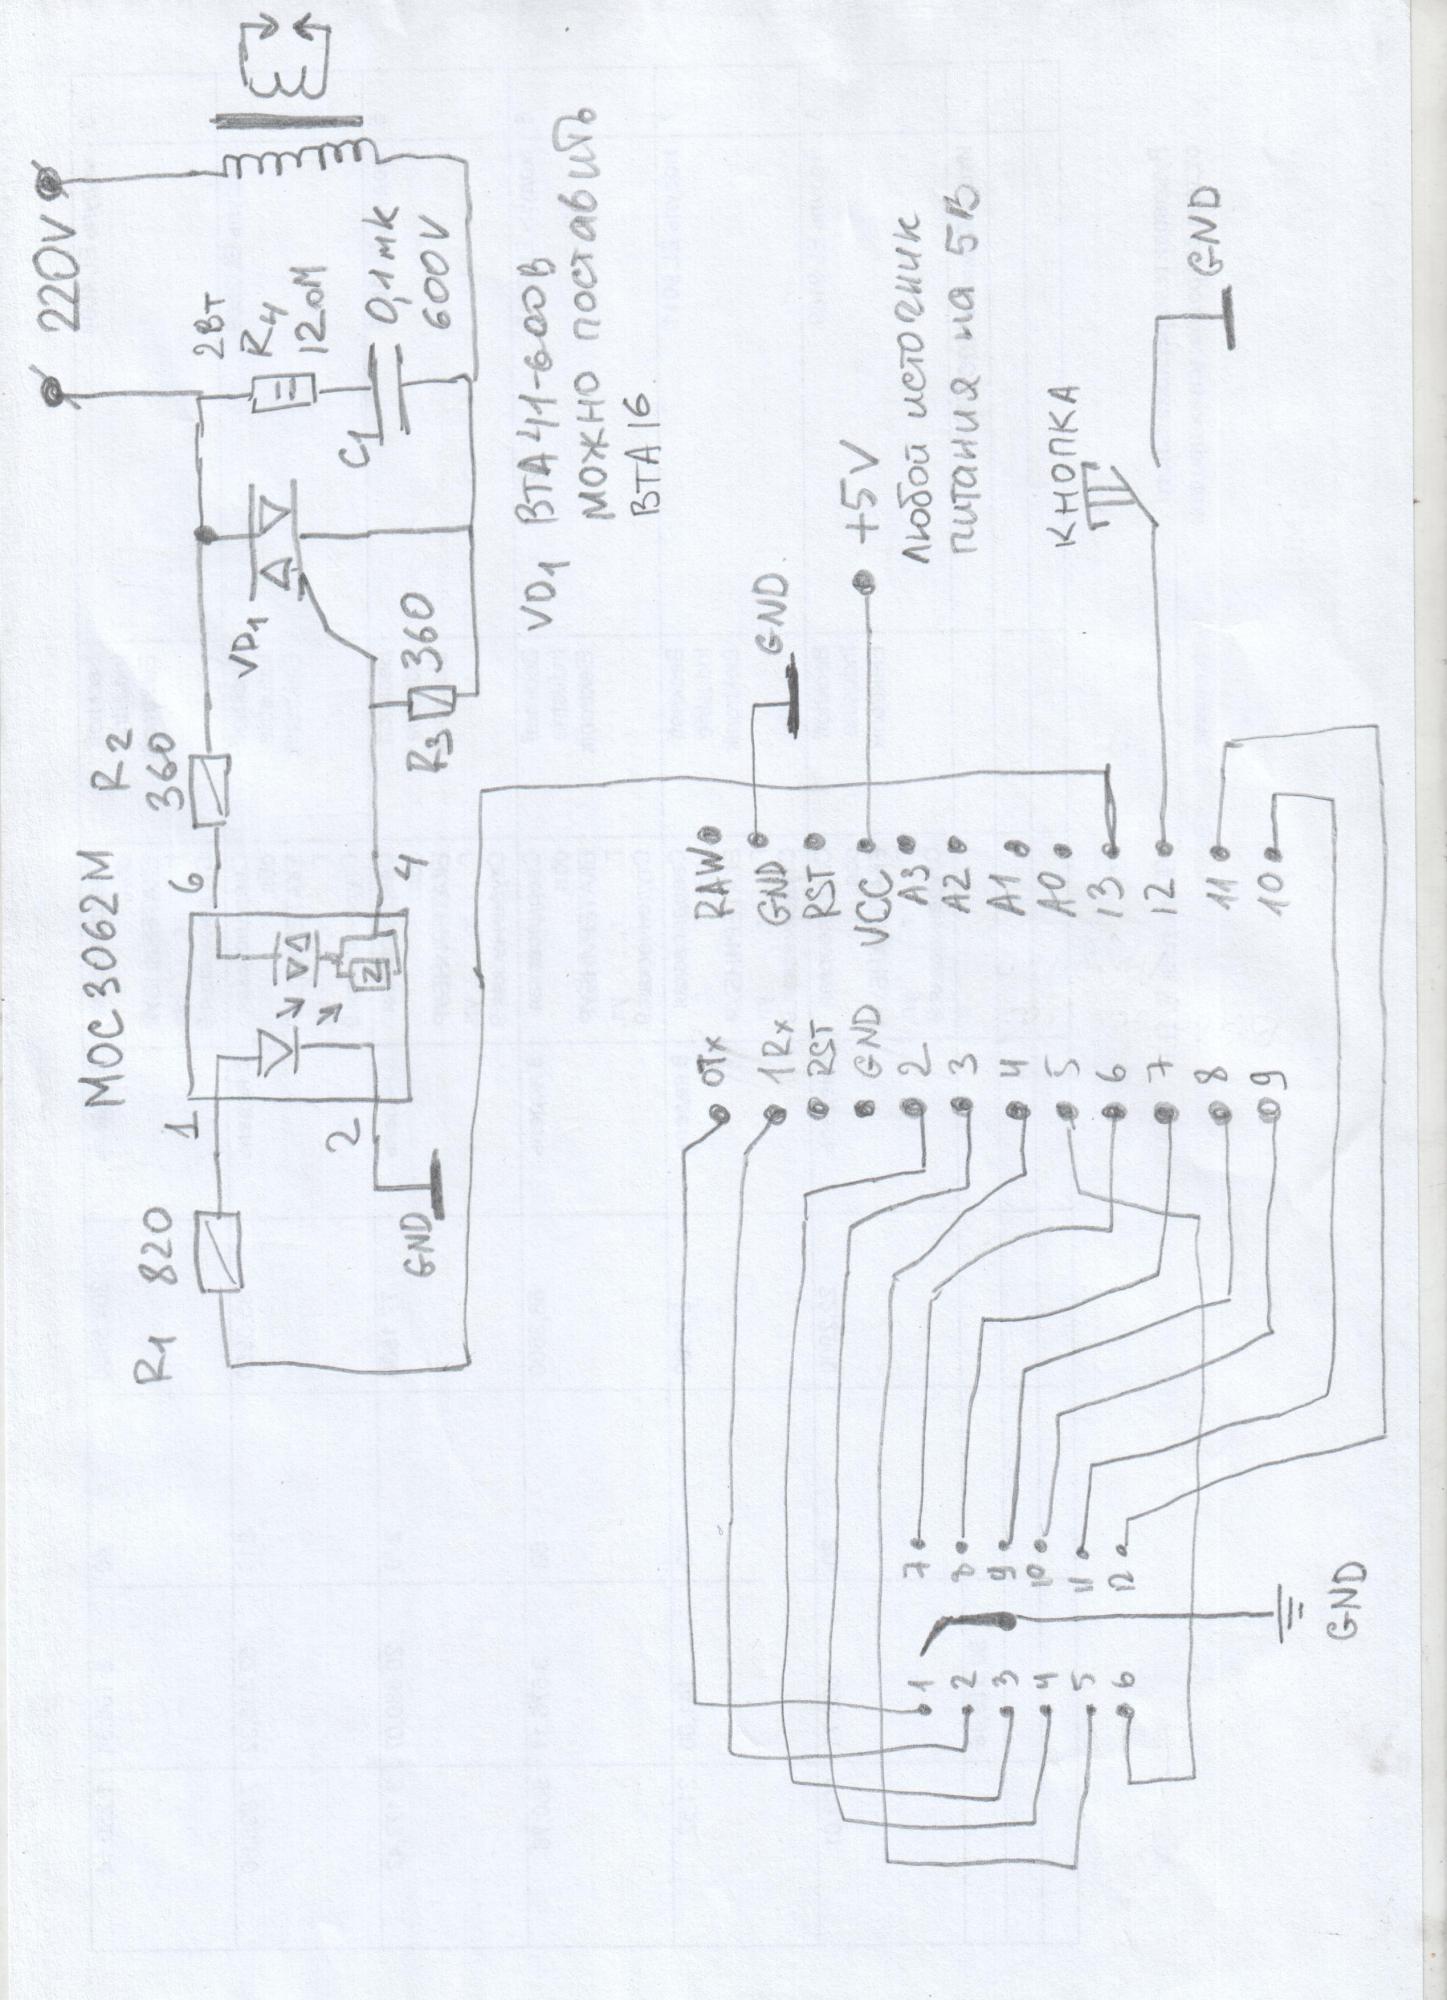 220V
2Вт
R4
12oM
0,1мк
600V
C1
VD1
R2
360
R3
360
MOC3062M
6
4
1
2
R1 820
GND
VD1 BTA41-600B
можно поставить
BTA16
GND
+5V
любой источник
питания на 5В
КНОПКА
GND
RAW
GND
RST
VCC
A3
A2
A1
A0
13
12
11
10
0Tx
1Rx
RST
GND
2
3
4
5
6
7
8
9
7
8
9
10
11
12
1
2
3
4
5
6
GND